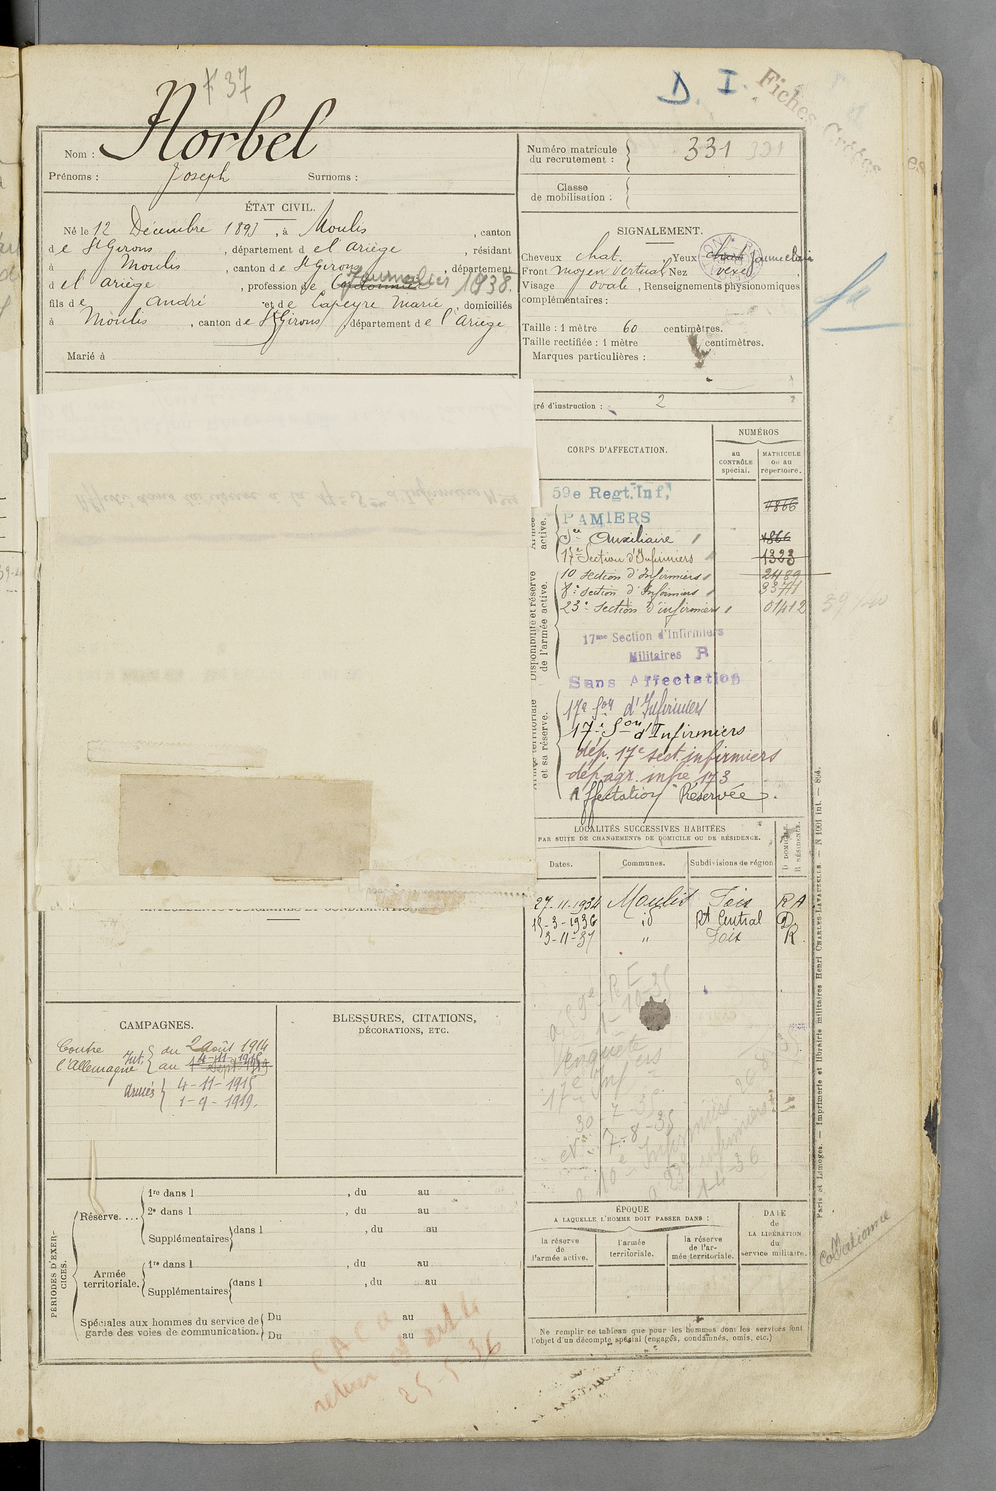 F 37
D. I.
Fiches Créées
Nom : Norbel
Prénoms : Joseph Surnoms :
Numéro matricule du recrutement : 331 331
Classe de mobilisation :
ÉTAT CIVIL.
Né le 12 Décembre 1891, à Moulis, canton
de St Girons, département de l'Ariège, résidant
à Moulis, canton de St Girons, département
de l'Ariège, profession de Cordonnier Journalier 1938.
fils de André et de Lapeyre Marie, domiciliés
à Moulis, canton de St Girons, département de l'Ariège
Marié à
SIGNALEMENT.
Cheveux chat. Yeux jaune clair
Front moyen vertical Nez vexe
Visage ovale, Renseignements physionomiques
complémentaires :
Taille : 1 mètre 60 centimètres.
Taille rectifiée : 1 mètre centimètres.
Marques particulières :
gré d'instruction : 2
CORPS D'AFFECTATION.
NUMÉROS
au CONTRÔLE spécial.
MATRICULE ou au répertoire.
Armée active.
59e Regt. Inf,
PAMIERS 1866
Son Auxiliaire 1866
17e Section d'Infirmiers 1323
Disponibilité et réserve de l'armée active.
10 Section d'Infirmiers 2489
8e Section d'Infirmiers 33711
23e Section d'infirmiers 01412
17me Section d'Infirmiers
Militaires R
Sans Affectation
Armée territoriale et sa réserve.
17e Son d'Infirmiers
17e Son d'Infirmiers
dép. 17e sect. infirmiers
dép. agr. infie 173
Affectation Réservée.
LOCALITÉS SUCCESSIVES HABITÉES
PAR SUITE DE CHANGEMENTS DE DOMICILE OU DE RÉSIDENCE.
Dates. Communes. Subdivisions de région D DOMICILE R RÉSIDENCE.
27-11-1934 Moulis Foix R A
15-3-1936 id Rt Central D
3-11-37 " Foix R
CAMPAGNES.
Contre l'Allemagne
Int. du 2 Août 1914
au 4-11-1915
Armées 4-11-1915
1-9-1919.
BLESSURES, CITATIONS,
DÉCORATIONS, ETC.
enquête
17e Infiers
30-7-35
7-8-35
PÉRIODES D'EXERCICES.
Réserve....
1re dans l , du au
2e dans l , du au
Supplémentaires dans l , du au
Armée territoriale.
1re dans l , du au
Supplémentaires dans l , du au
Spéciales aux hommes du service de garde des voies de communication.
Du au
Du au
ÉPOQUE
A LAQUELLE L'HOMME DOIT PASSER DANS :
la réserve de l'armée active.
l'armée territoriale.
la réserve de l'armée territoriale.
DATE de LA LIBÉRATION du service militaire.
Ne remplir ce tableau que pour les hommes dont les services font
l'objet d'un décompte spécial (engagés, condamnés, omis, etc.)
25-5-36
Collationné
Paris et Limoges. — Imprimerie et librairie militaires Henri CHARLES-LAVAUZELLE. — N 1001 int. — 894.